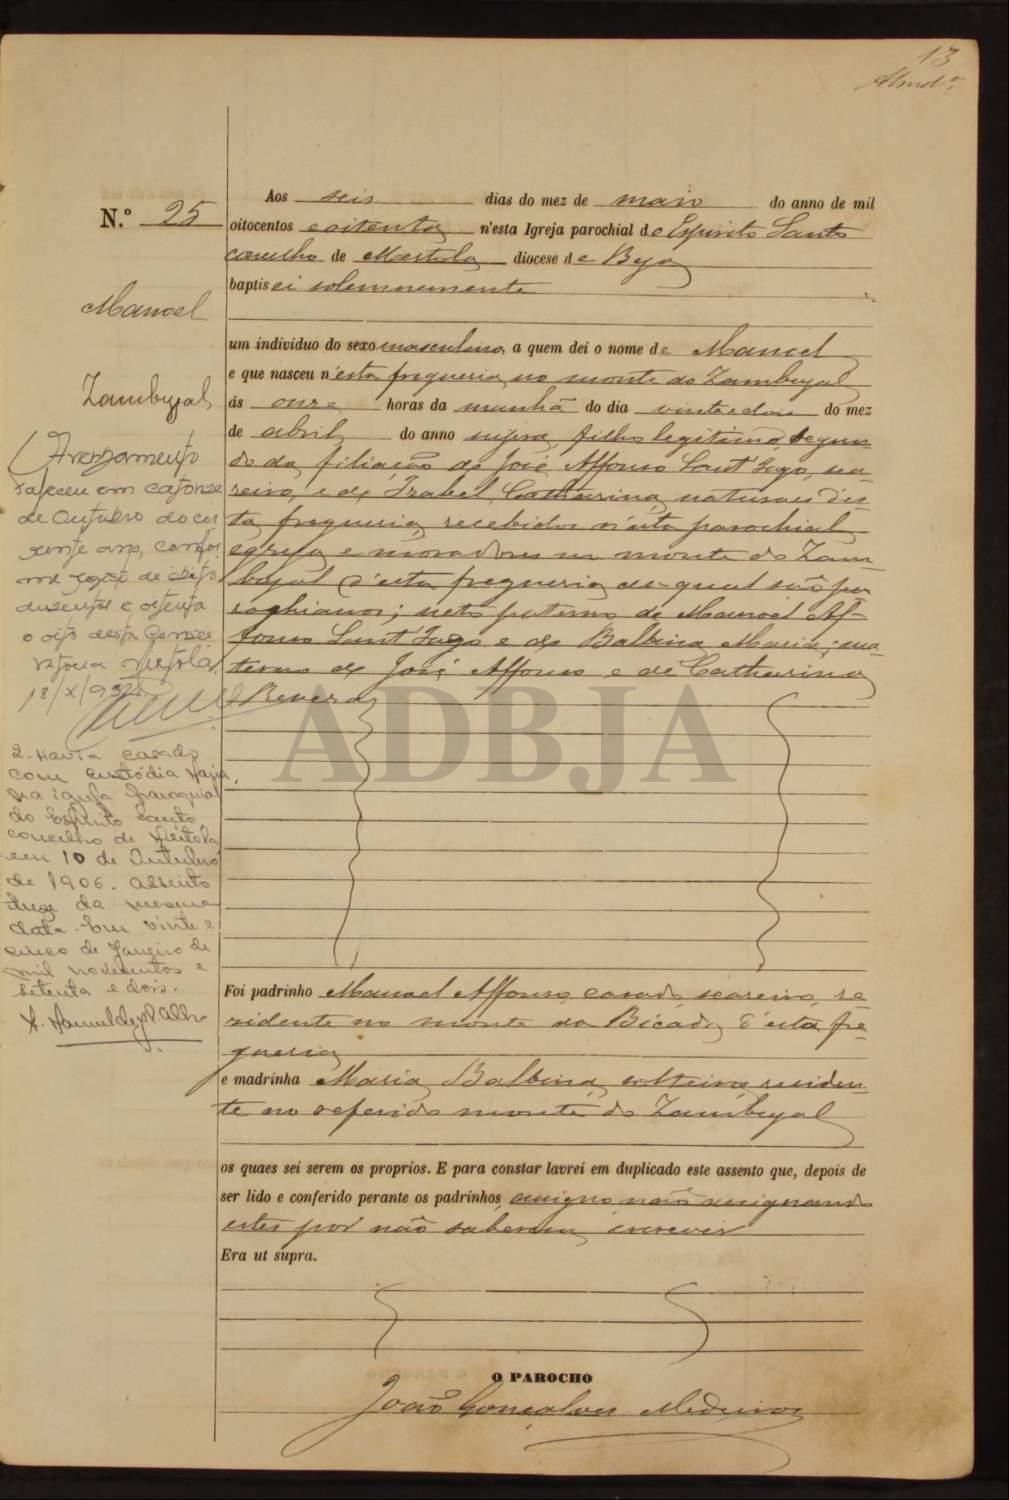 13
Almd.ª
N.º 25
Manoel
Zambujal
Averbamento
Faleceu em catorze
de Outubro do cor
rente ano, confor
me registo de óbito
duzentos e oitenta
e oito desta Conser
vatória Mertola
18/X/95
2. Havia casado
com Custódia Maria,
na igreja paroquial
do Espírito Santo,
concelho de Mértola
em 10 de Outubro
de 1906. assento
treze da mesma
data. Em vinte e
cinco de Janeiro de
mil novecentos e
setenta e dois.
Aos seis dias do mez de maio do anno de mil
oitocentos e oitenta n'esta Igreja parochial do Espirito Santo
concelho de Mertola diocese de Beja
baptisei solemnemente
um individuo do sexo masculino a quem dei o nome de Manoel
e que nasceu n'esta freguesia, no monte do Zambujal
ás onze horas da manhã do dia vinte e dois do mez
de abril do anno supra, filho legitimo, segun-
do da filiação de José Affonso Sant'Iago, sea-
reiro, e de Izabel Catharina, naturaes d'es-
ta freguesia, recebidos n'esta parochial
egreja e moradores no monte do Zam-
bujal d'esta freguesia, da qual são pa-
rochianos; neto paterno de Manoel Af-
fonso Sant'Iago e de Balbina Maria; ma-
terno de José Affonso e de Catharina
ADBJA
Foi padrinho Manoel Affonso, casado, seareiro, re-
zidente no monte da Bicada, d'esta fre-
guesia
e madrinha Maria Balbina, solteira, residen-
te no referido monte do Zambujal
os quaes sei serem os proprios. E para constar lavrei em duplicado este assento que, depois de
ser lido e conferido perante os padrinhos, assigno não assignando
estes por não saberem escrever
Era ut supra.
O PAROCHO
João Gonçalves Medeiros